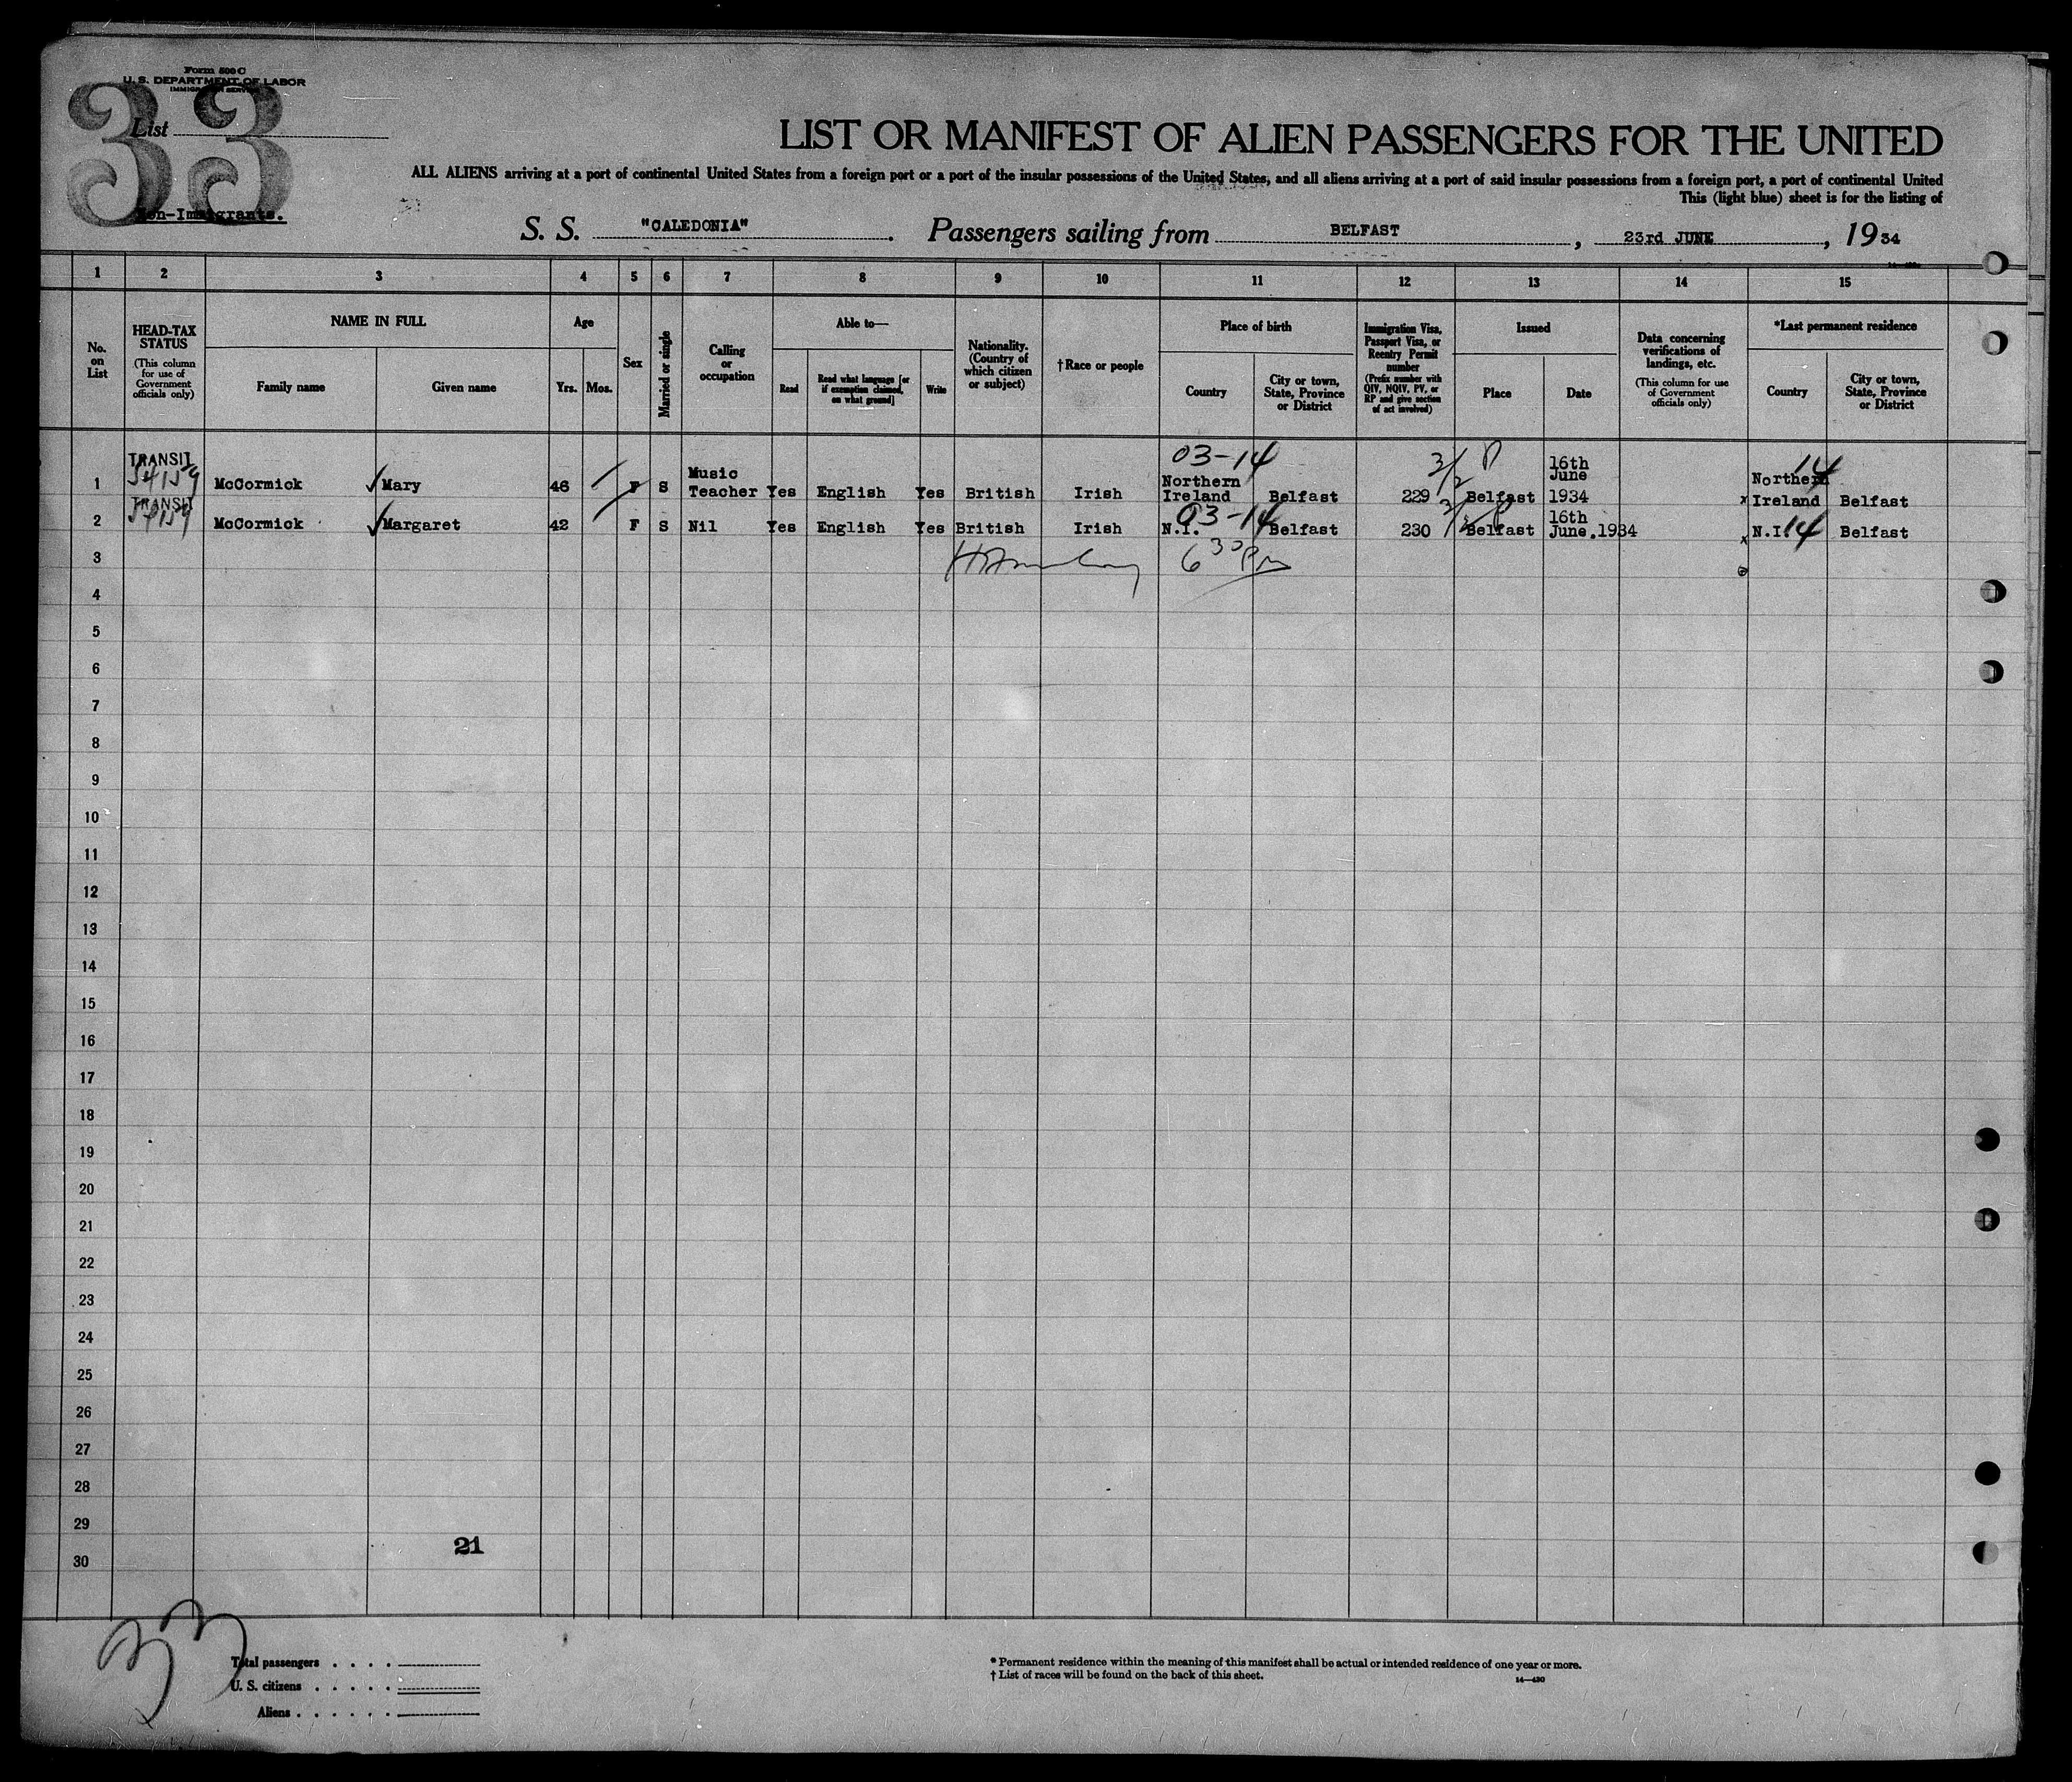 Form 500 C
U. S. DEPARTMENT OF LABOR
IMMIGRATION SERVICE
33
List
Non-Immigrants.
LIST OR MANIFEST OF ALIEN PASSENGERS FOR THE UNITED
ALL ALIENS arriving at a port of continental United States from a foreign port or a port of the insular possessions of the United States, and all aliens arriving at a port of said insular possessions from a foreign port, a port of continental United
This (light blue) sheet is for the listing of
S. S. "CALEDONIA". Passengers sailing from BELFAST, 23rd JUNE, 1934
1 2 3 4 5 6 7 8 9 10 11 12 13 14 15
No. on List
HEAD-TAX STATUS
(This column for use of Government officials only)
NAME IN FULL
Family name
Given name
Age
Yrs. Mos.
Sex
Married or single
Calling or occupation
Able to—
Read
Read what language [or if exemption claimed, on what ground]
Write
Nationality. (Country of which citizen or subject)
†Race or people
Place of birth
Country
City or town, State, Province or District
Immigration Visa, Passport Visa, or Reentry Permit number
(Prefix number with QIV, NQIV, PV, or RP and give section of act involved)
Issued
Place
Date
Data concerning verifications of landings, etc.
(This column for use of Government officials only)
*Last permanent residence
Country
City or town, State, Province or District
03-14
1 TRANSIT McCormick Mary 46 F S Music Teacher Yes English Yes British Irish Northern Ireland Belfast 229 Belfast 16th June 1934 x Northern Ireland 14 Belfast
03-14
2 TRANSIT McCormick Margaret 42 F S Nil Yes English Yes British Irish N.I. Belfast 230 Belfast 16th June.1934 x N.I. 14 Belfast
3 6 30 Pm
4
5
6
7
8
9
10
11
12
13
14
15
16
17
18
19
20
21
22
23
24
25
26
27
28
29
21
30
33
Total passengers
U. S. citizens
Aliens
* Permanent residence within the meaning of this manifest shall be actual or intended residence of one year or more.
† List of races will be found on the back of this sheet.
14—430